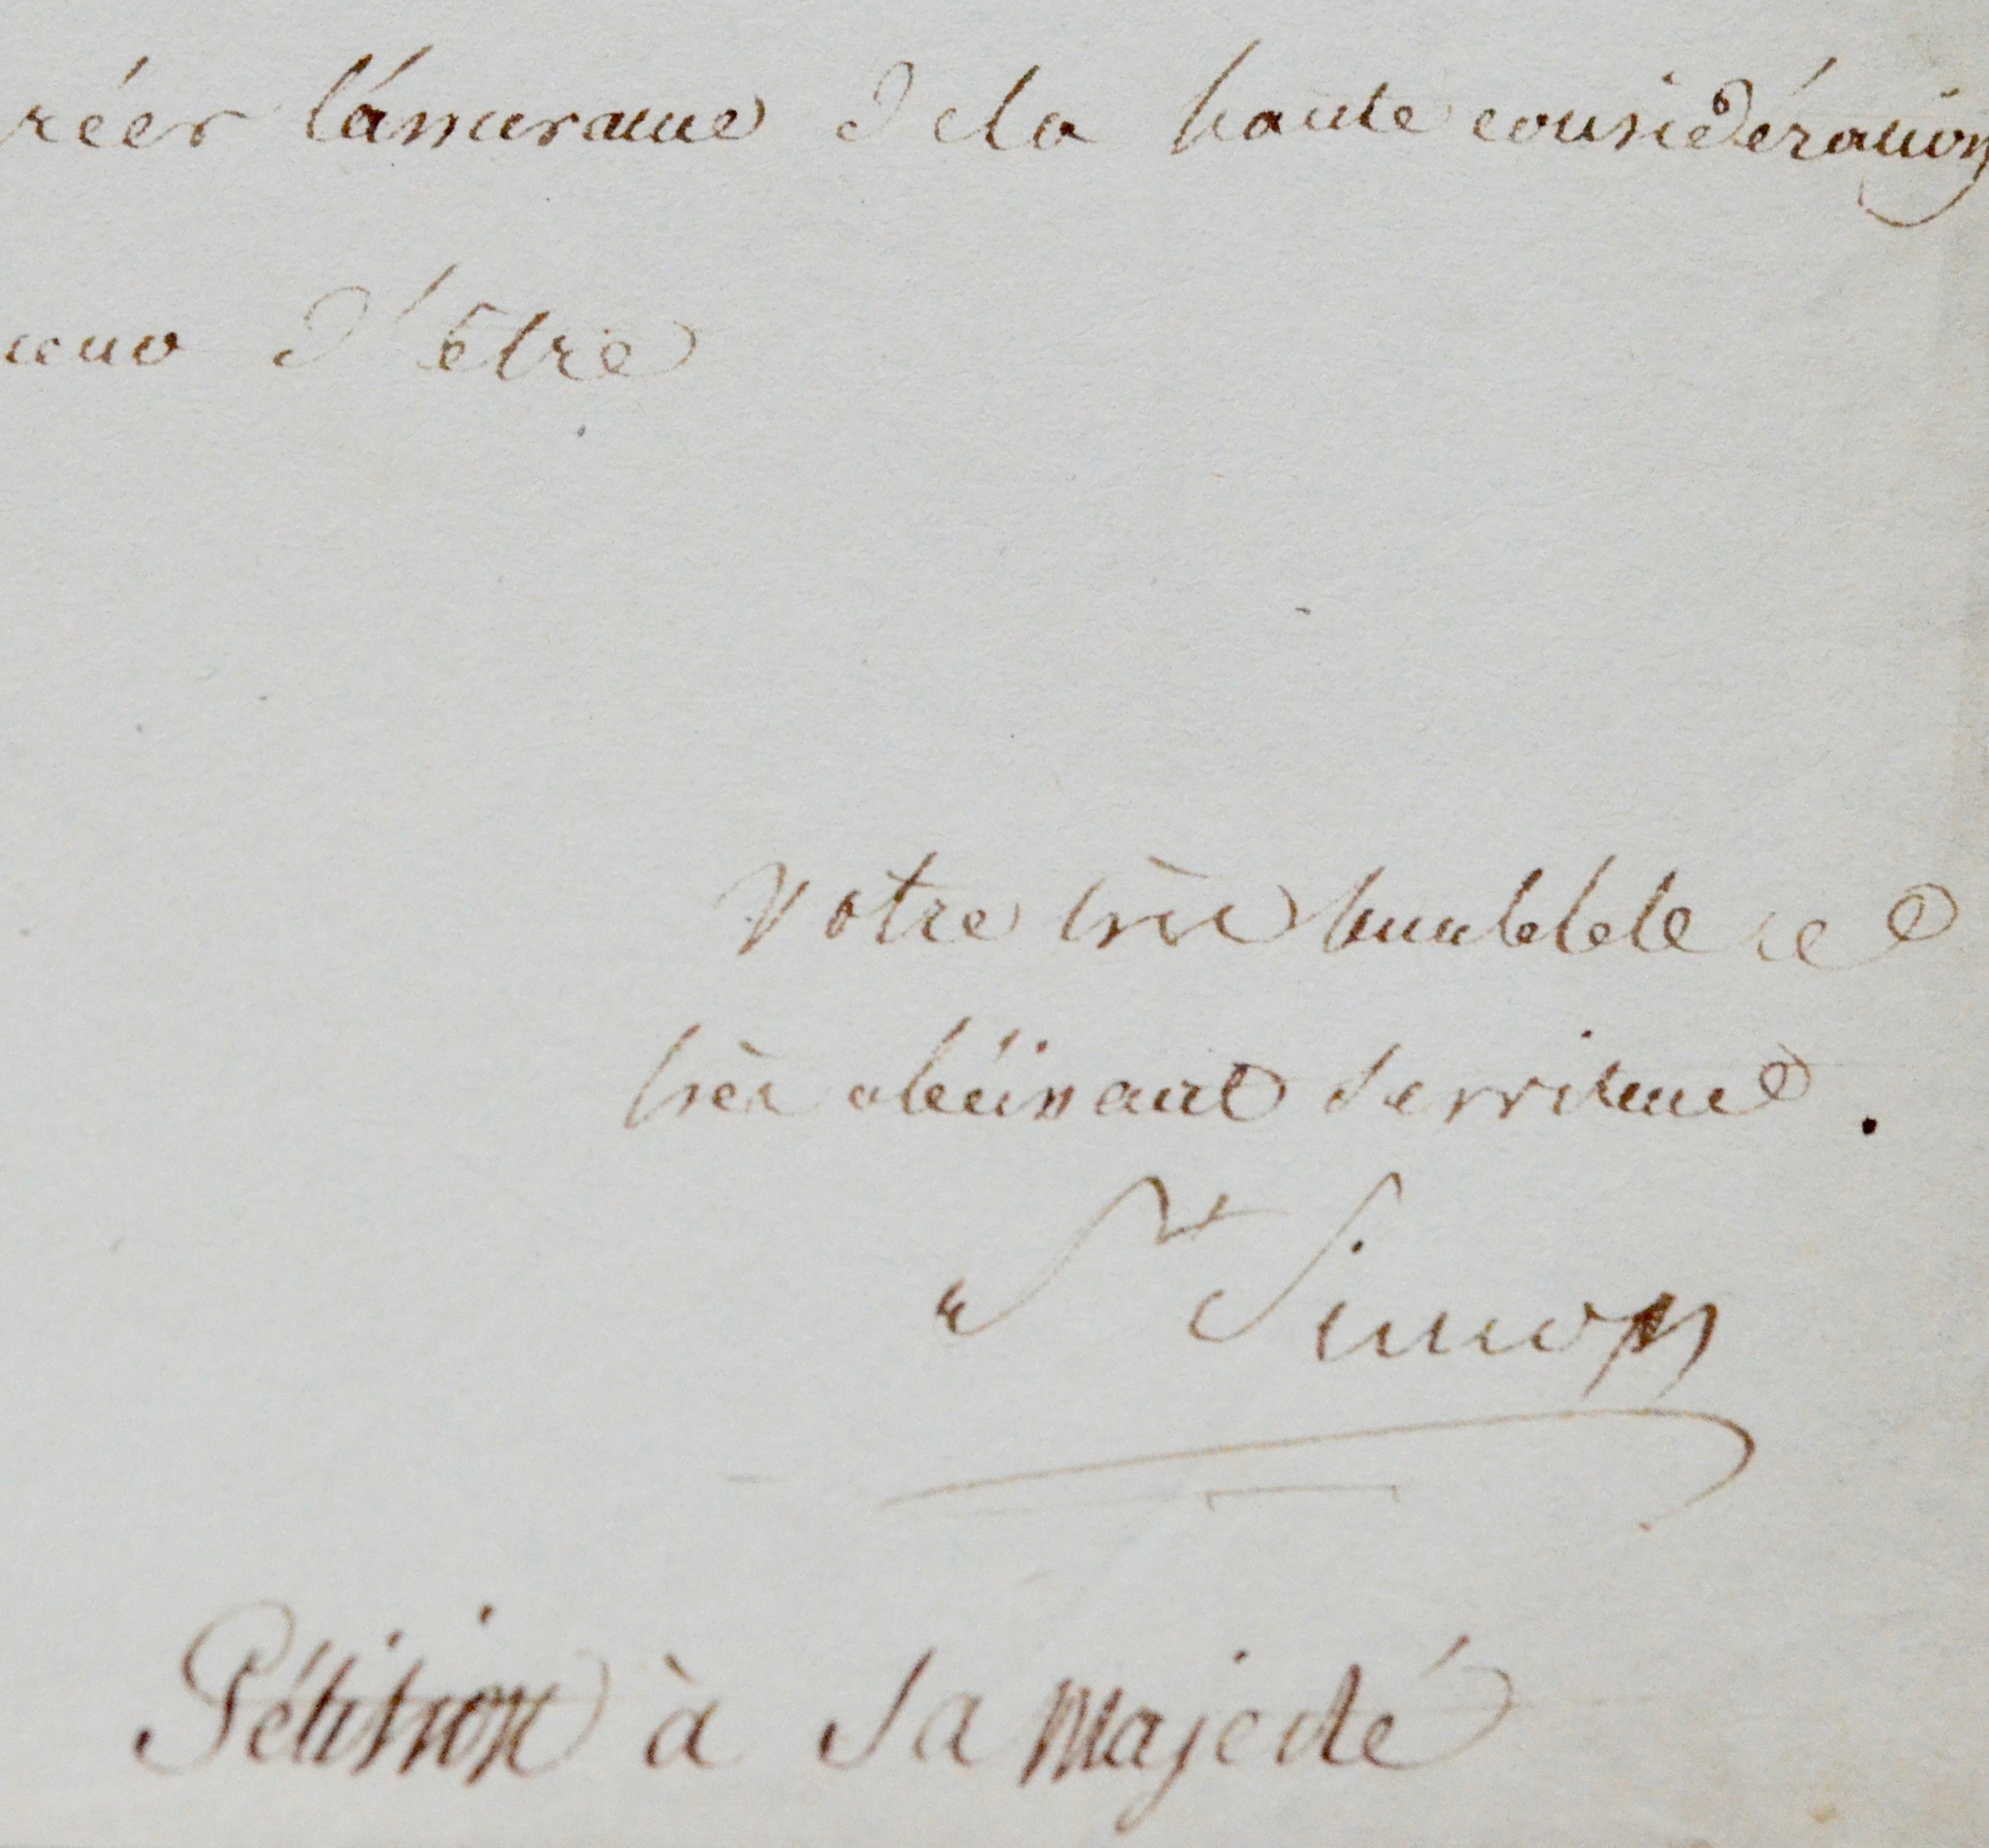 réer l'assurance dela haute considération
d'être
votre très humble et
très obéissant serviteur.
St Simon
Pétition à Sa Majesté